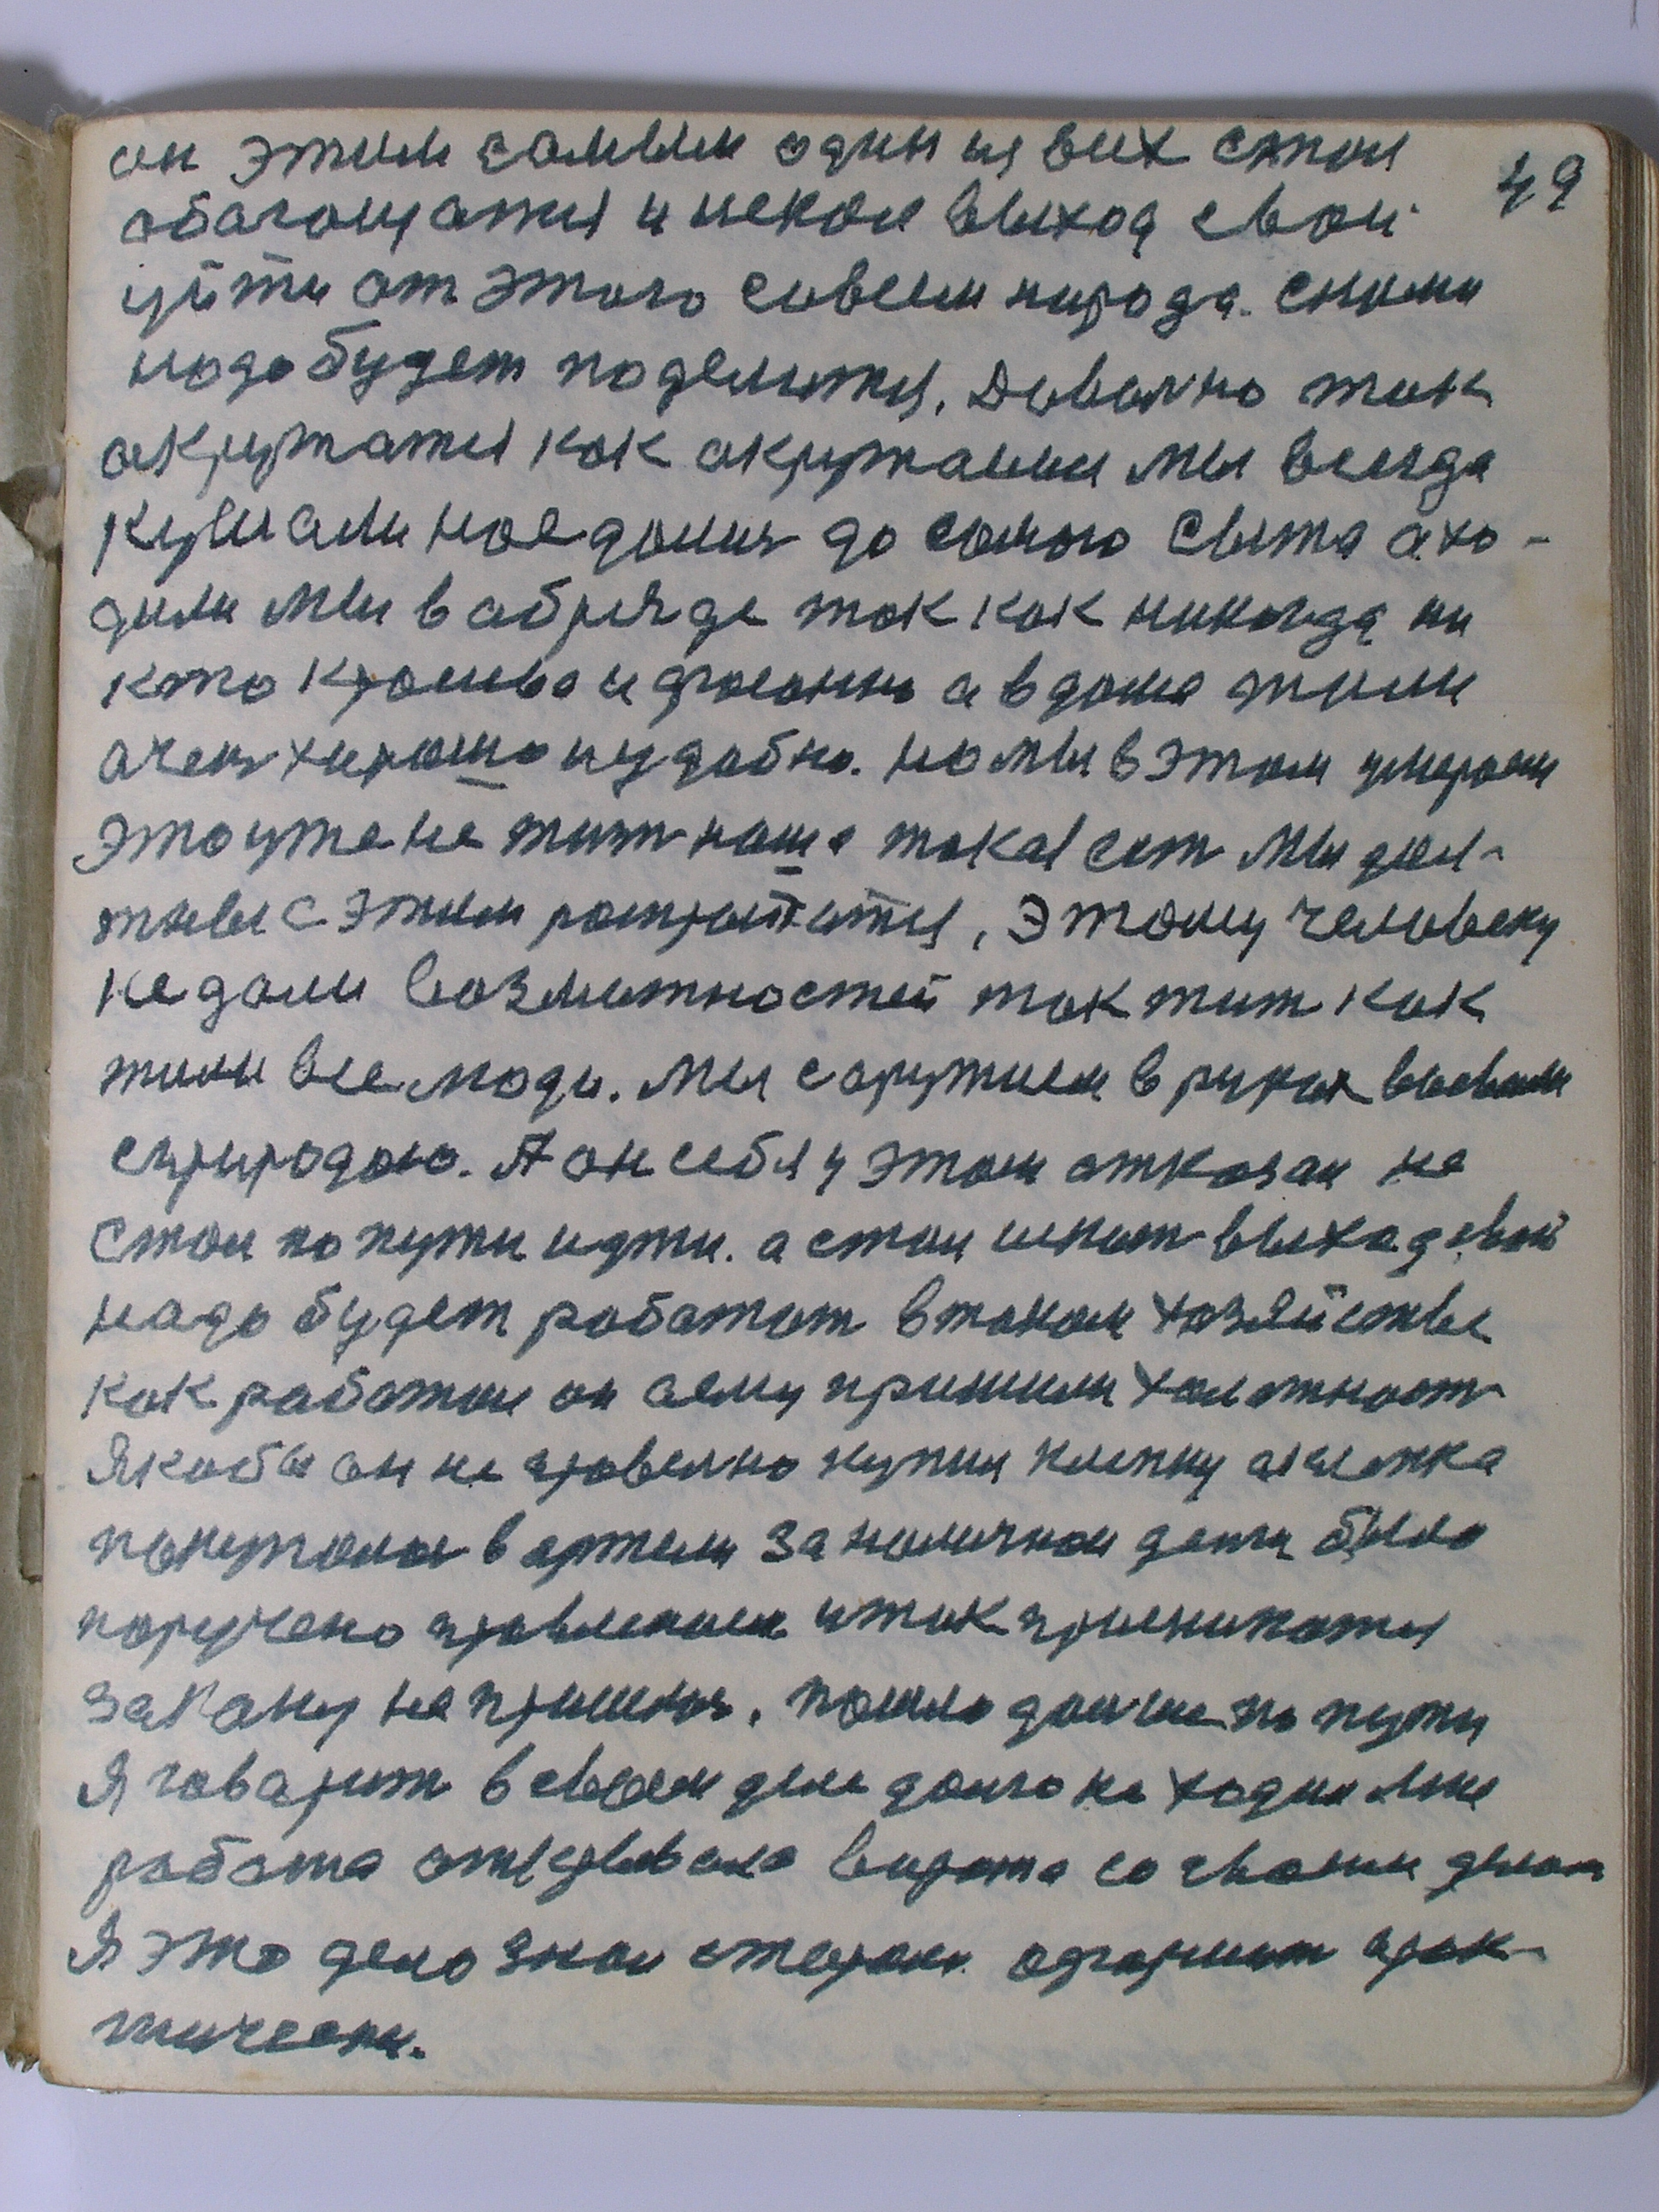 он этим самым один из всех стал 49
абагощатся и искал выход свой
уйти от этого совсем народа. с ними
надо будет поделится. Давольно так
акружатся как акружали мы всегда
кушали наедались до самого сыта а хо-
дили мы в абряде так как никогда ни
кто красиво и фасонно а в доме жили
очень хорошо и удобно. но мы в этом умерали
это уже не жизнь наша такая есть мы дол-
жны с этим распроститься, Этому человеку
не дали возможностей так жить как
жили все люди. Мы с оружием в руках воевали
с природою. А он себя у этом отказал не
стал по пути идти. а стал искать выход свой
надо будет работать в таком хозяйстве
как работал он ему пришили халатность
Якобы он не правельно купил клепку а клепка
покупалась в артели за наличнаи денги было
поручено правлением и так приценилися
закону не пришлось. пошло дальше по пути
Я говарить в своем деле долго не ходил мне
работа открывала ворота со своим делом
Я это дело знал старался одгорить прак-
тически.